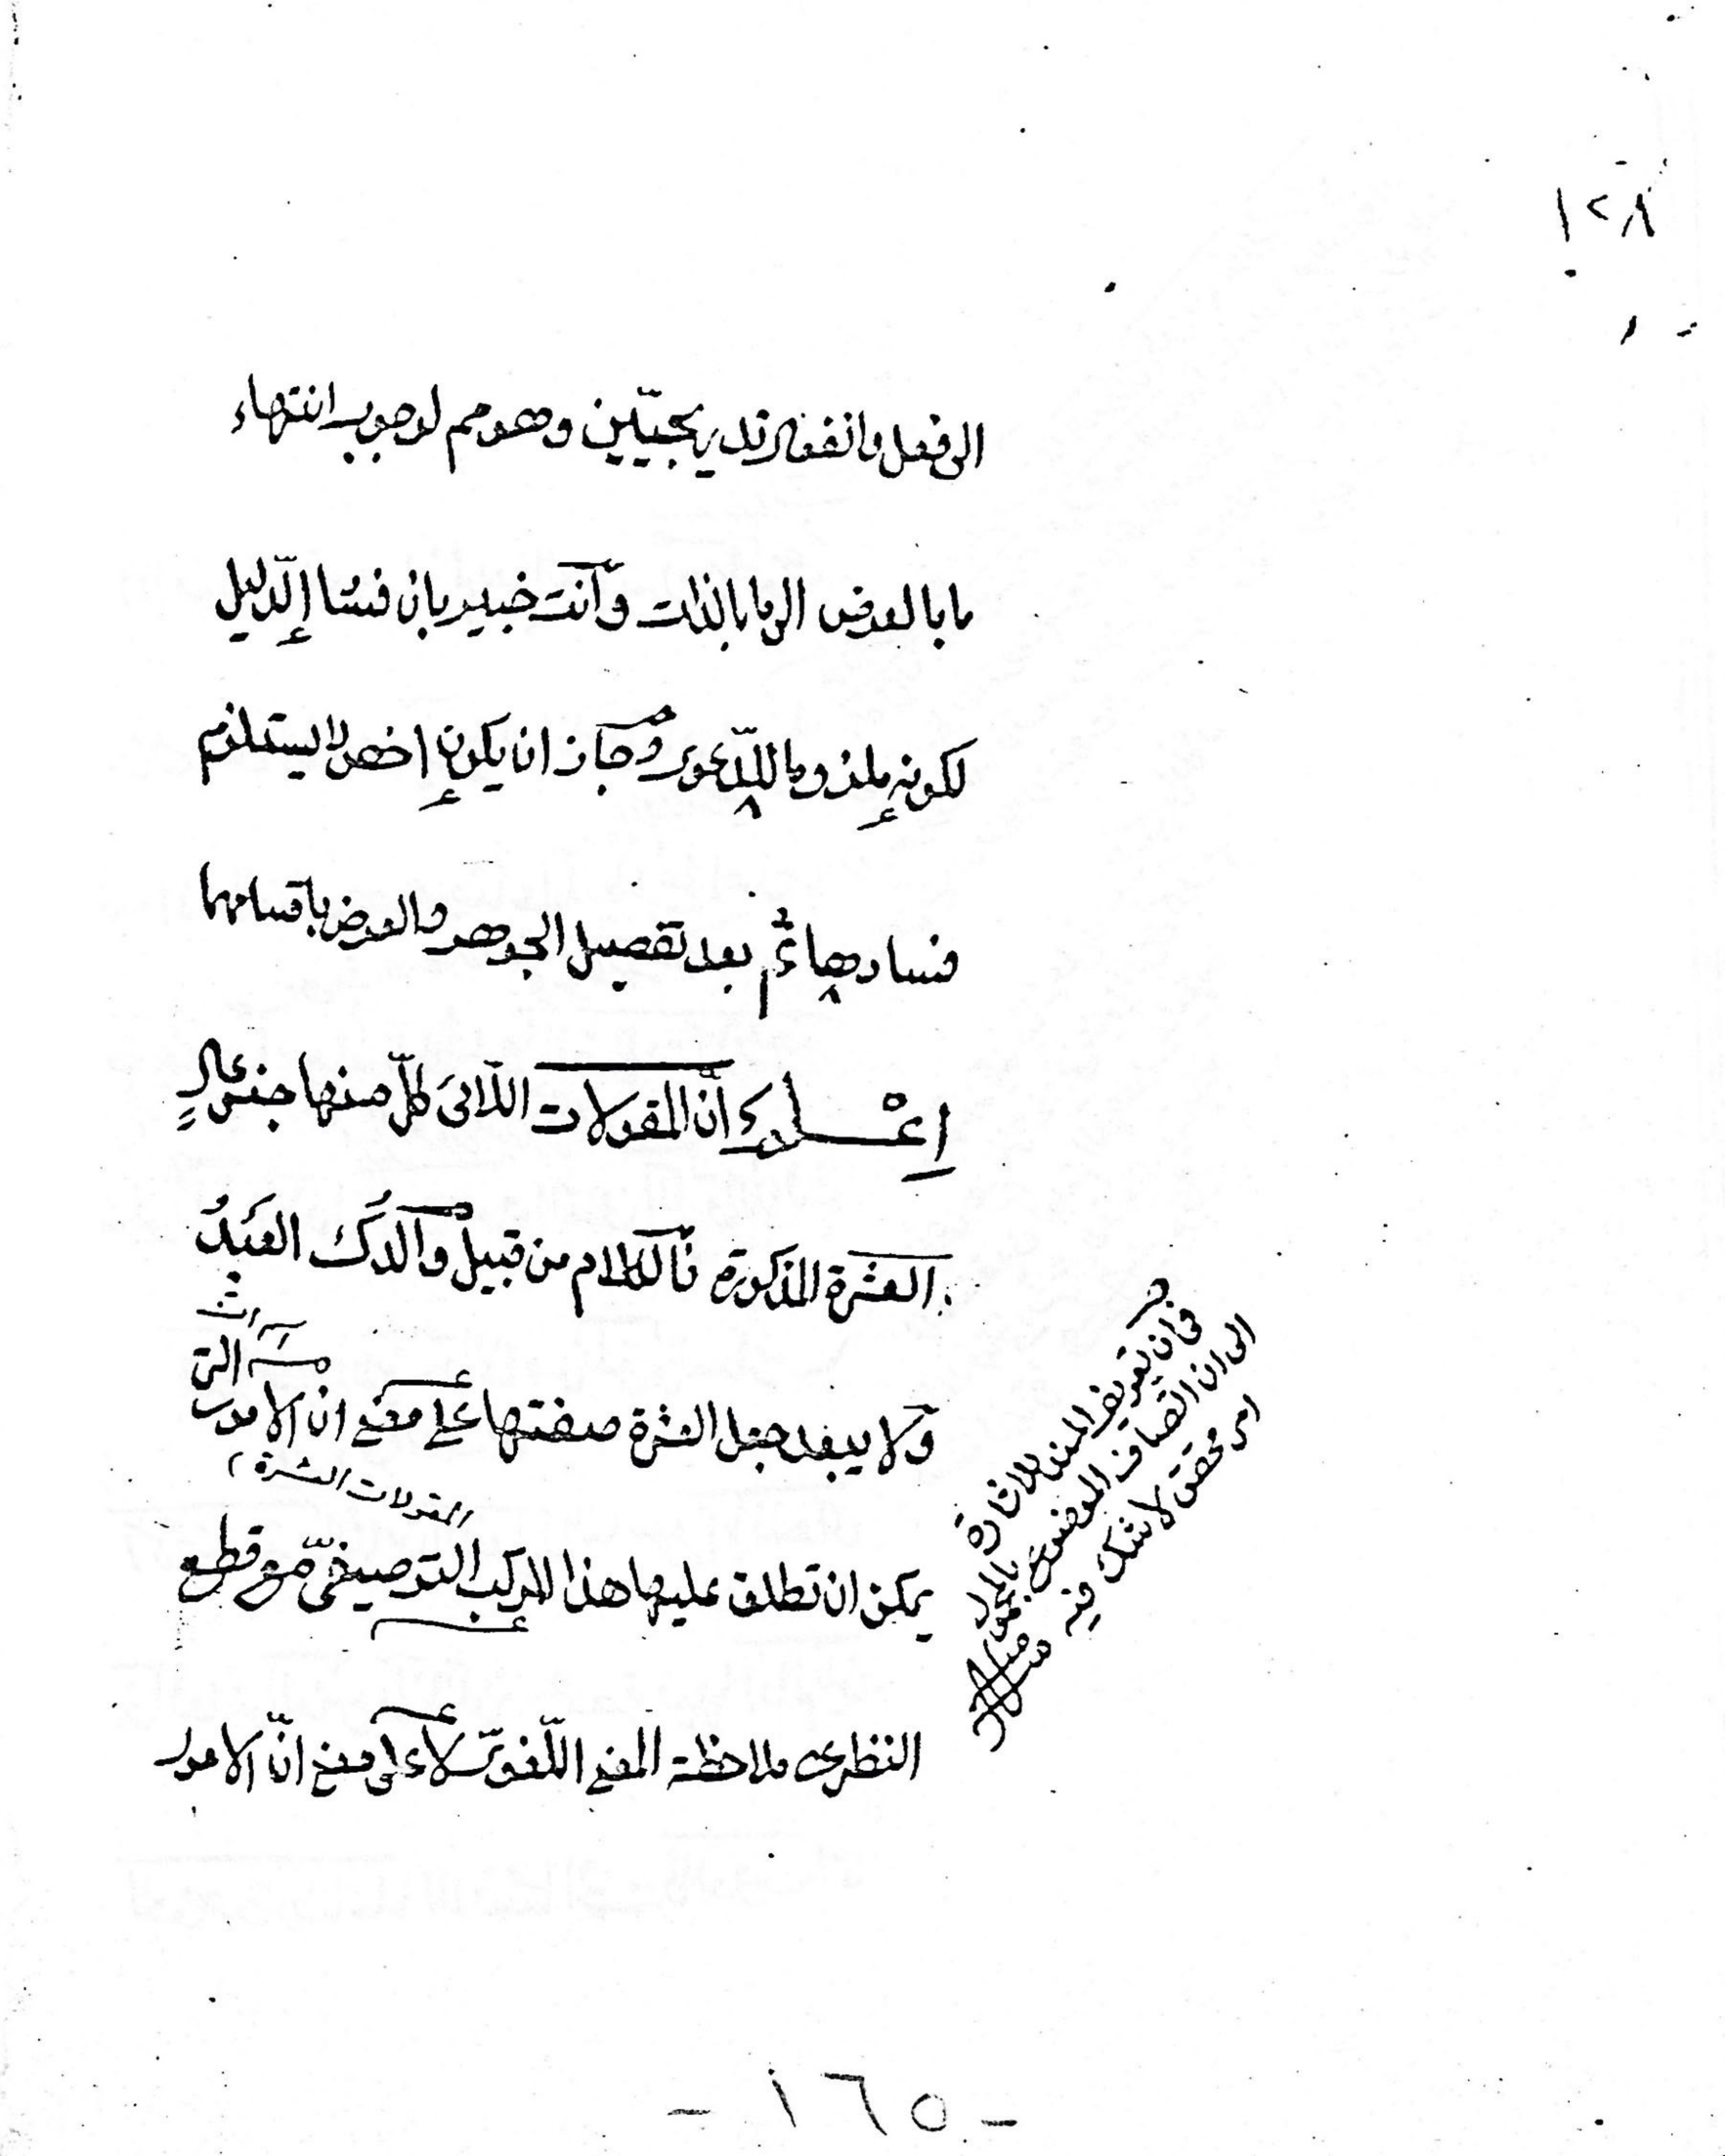 ١٢٨
الى فعل وانفعال تدريجيّين وهو مم لوجوب انتهاء
ما بالعرض الى ما بالذات وانت خبير بان فساد الدّليل
لكونه ملزوما للدّعوى وجاز ان يكون اخص لا يستلزم
فسادها ثم بعد تفصيل الجوهر والعرض باقسامهما
اِعْلم انّ المقولات اللاّتى كلّ منها جنس عالٍ
العشرة المذكورة فالكلام من قبيل والدك العبدُ
ولا يبعد جعل العشرة صفتها على معنى ان الامور التى
المقولات العشرة
يمكن ان تطلق عليها هذا المركب التوصيفىّ مع قطع
النظر عن ملاحظة المعنى اللّغوىّ لا على معنى انّ الامور
فى ان تعريف المسند للاشارة
الى ان اتصاف الموضوع بالمحمول
امر محقق لا شك فيه
- ١٦٥ -